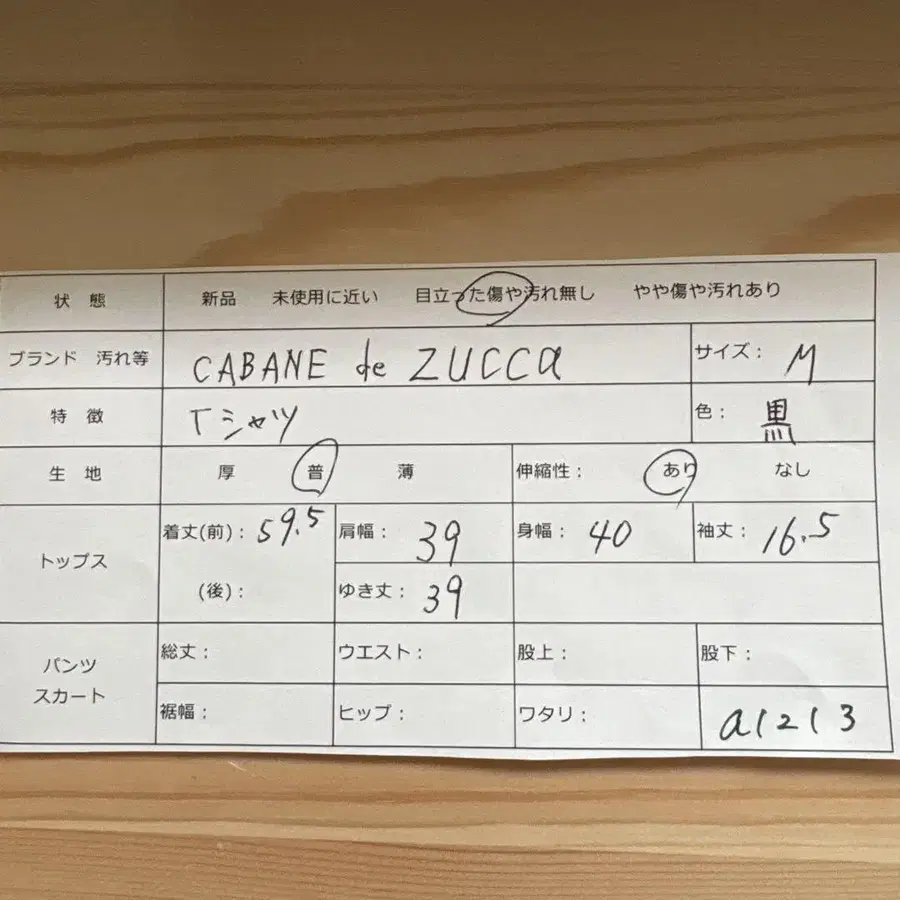 状 態 新品 未使用に近い 目立った傷や汚れ無し やや傷や汚れあり
ブランド 汚れ等 CABANE de ZUCCa サイズ： M
特 徴 Tシャツ 色： 黒
生 地 厚 普 薄 伸縮性： あり なし
トップス 着丈(前)： 59.5 肩幅： 39 身幅： 40 袖丈： 16.5
(後)： ゆき丈： 39
パンツ スカート 総丈： ウエスト： 股上： 股下：
裾幅： ヒップ： ワタリ： a1213